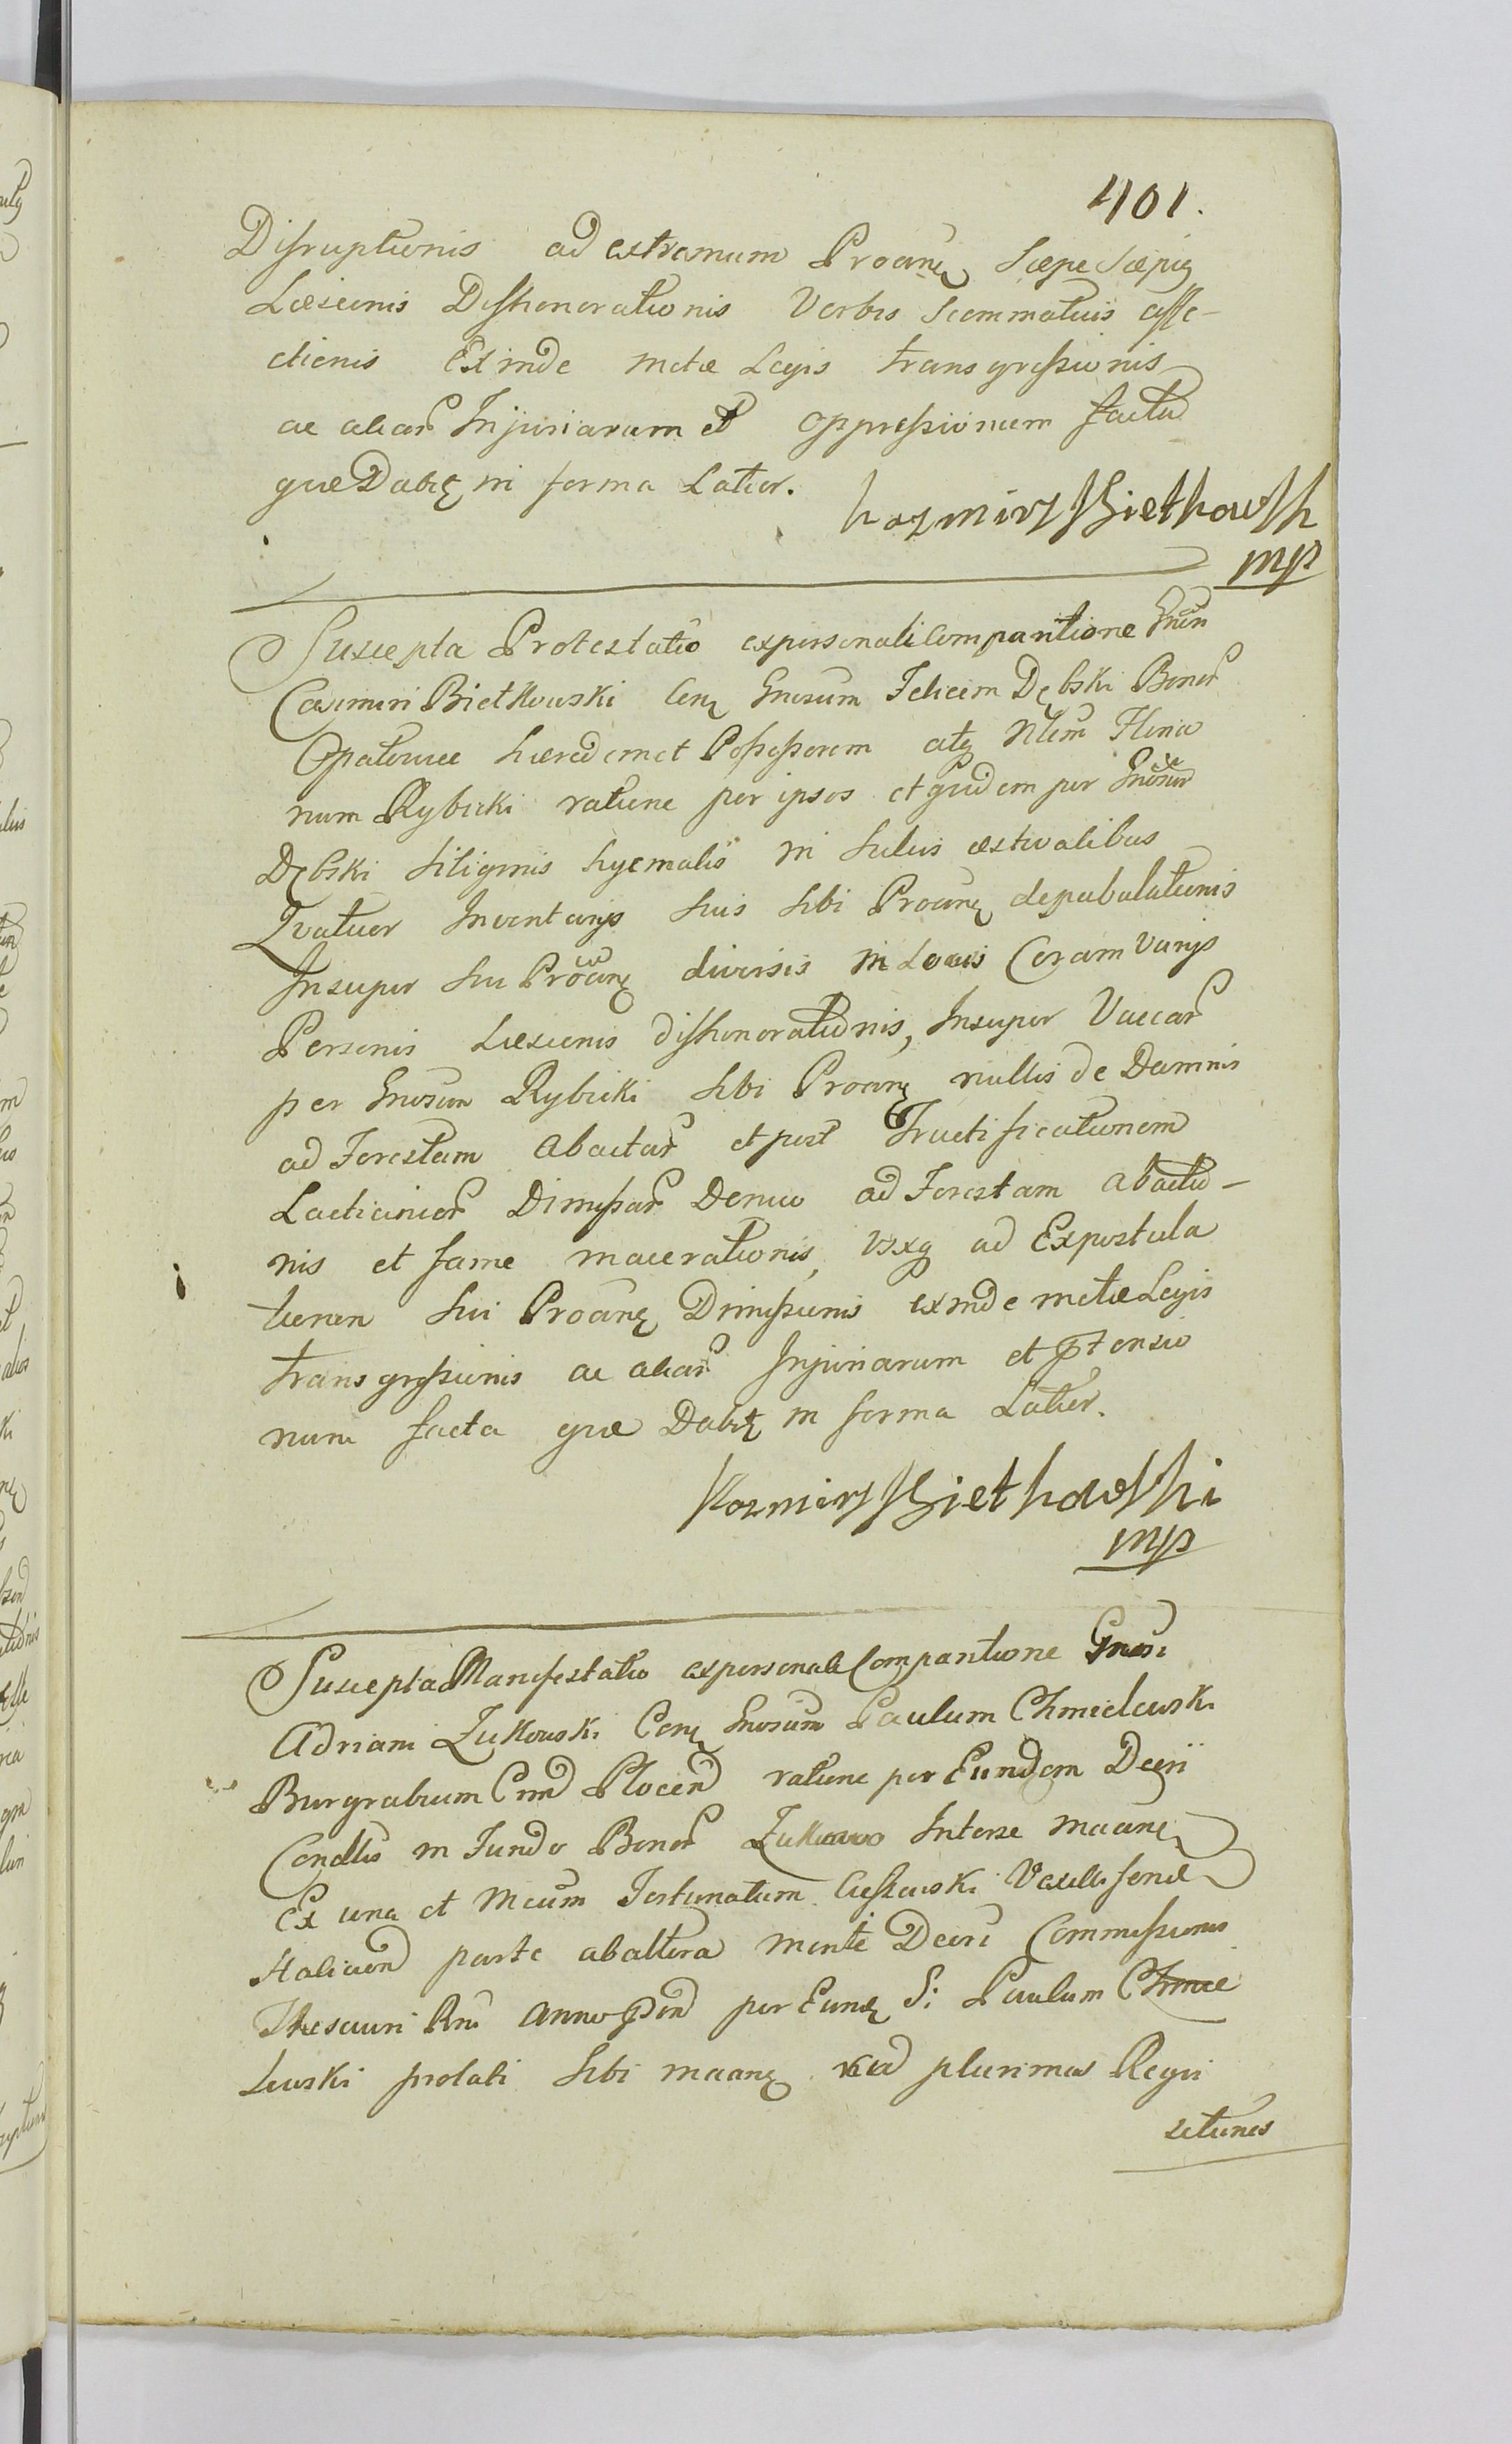 401.
Disruptionis ad extremum Procanę Sæpe Sæpiq
Læsionis Dishonorationis Verbis Scommaticis affe-
ctionis Exinde metæ Legis transgressionis
ac aliar Injuriarum et oppressionum facta
quæ Dabit in forma Latior.
Kazmirz Bietkowsk
mp
Suscepta Protestatio ex personali Comparitione Gnsi
Casimiri Bietkowski Conq Gnosum Felicem Dębski Bonor
Opatowiec hæredem et Possessorem atq Nlem Floria
num Rybicki ratione per ipsos et quidem per Gnosum
Dębski siliginis hyemalis in sulcis æstivalibus
Qvatuor Inventarijs suis sibi Procanę depabulationis
Insuper sui Procanę diversis in Locis Coram varijs
Personis Læsionis dishonorationis, Insuper Vaccar
per Gnosum Rybicki sibi Procanę nullis de Damnis
ad Forestam Abactar et post Fructificationem
Lacticinior Dimissar Denuo ad Forestam abactio-
nis et fame macerationis, vsxq ad Expostula
tionem sui Procanę Dimissionis exinde metæ Legis
transgressionis ac aliar Injuriarum et Ptensio
num facta quæ Dabit in forma Latior.
Kazmirz Bietkowski
mp
Suscepta Manifestatio ex personali Comparitione Gnosi
Adriani Zukowski Conq Gnosum Paulum Chmielewski
Burgrabium Cnm Plocen ratione per Eundem Decri
Condtis in Fundo Bonor Zukowo Interse Macanę
Ex una et Mcum Fortunatum Cieszewski Vexilliferid
Halicien parte ab altera mente Decri Commissionis
Thesauri Rni Anno Psn per Eundę G: Paulum Chmie
lewski prolati sibi macanę plurimas Reqvi
sitiones